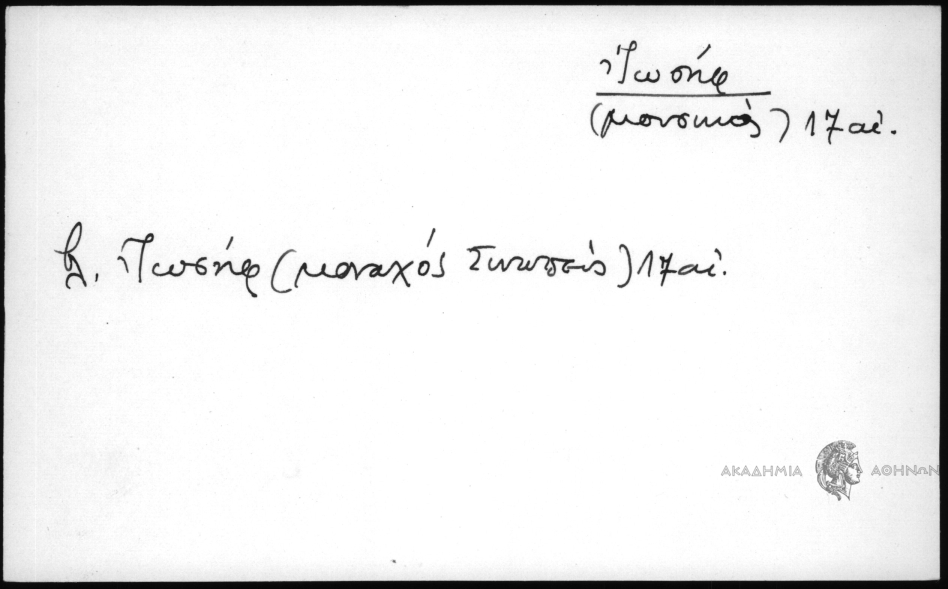 Ἰωσήφ
(μουσικός) 17 αἰ.
βλ. Ἰωσήφ (μοναχός Σινωπεύς) 17 αἰ.
ΑΚΑΔΗΜΙΑ ΑΘΗΝΩΝ